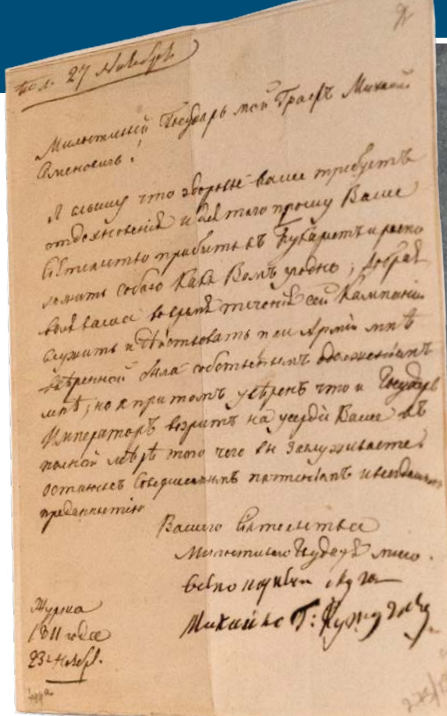 пол. 27 Ноября
Милостивый Государь мой Графъ Михаилъ
Семеновичь!
Я слышу что здоровье ваше требуетъ
отдохновенія и для того прошу Ваше
Сіятельство прибыть въ Букарестъ и распо
ложить собою какъ Вамъ угодно; добрая
воля ваша во время теченія сей Кампаніи
служить и действовать при Арміи мнѣ
ввѣренной была собственнымъ одолженіемъ
мнѣ; но я притомъ увѣренъ что и Государь
Императоръ воззритъ на усердіе Ваше въ
полной мѣрѣ того чего вы заслуживаете.
Остаюсь Совершеннымъ почтеніемъ и всегдашнею
преданностію
Вашего Сіятельства
Милостиваго Государя моего
всепокорный слуга
Михайло Г: Кутузовъ
Журжа
1811 года
23 Ноябр.